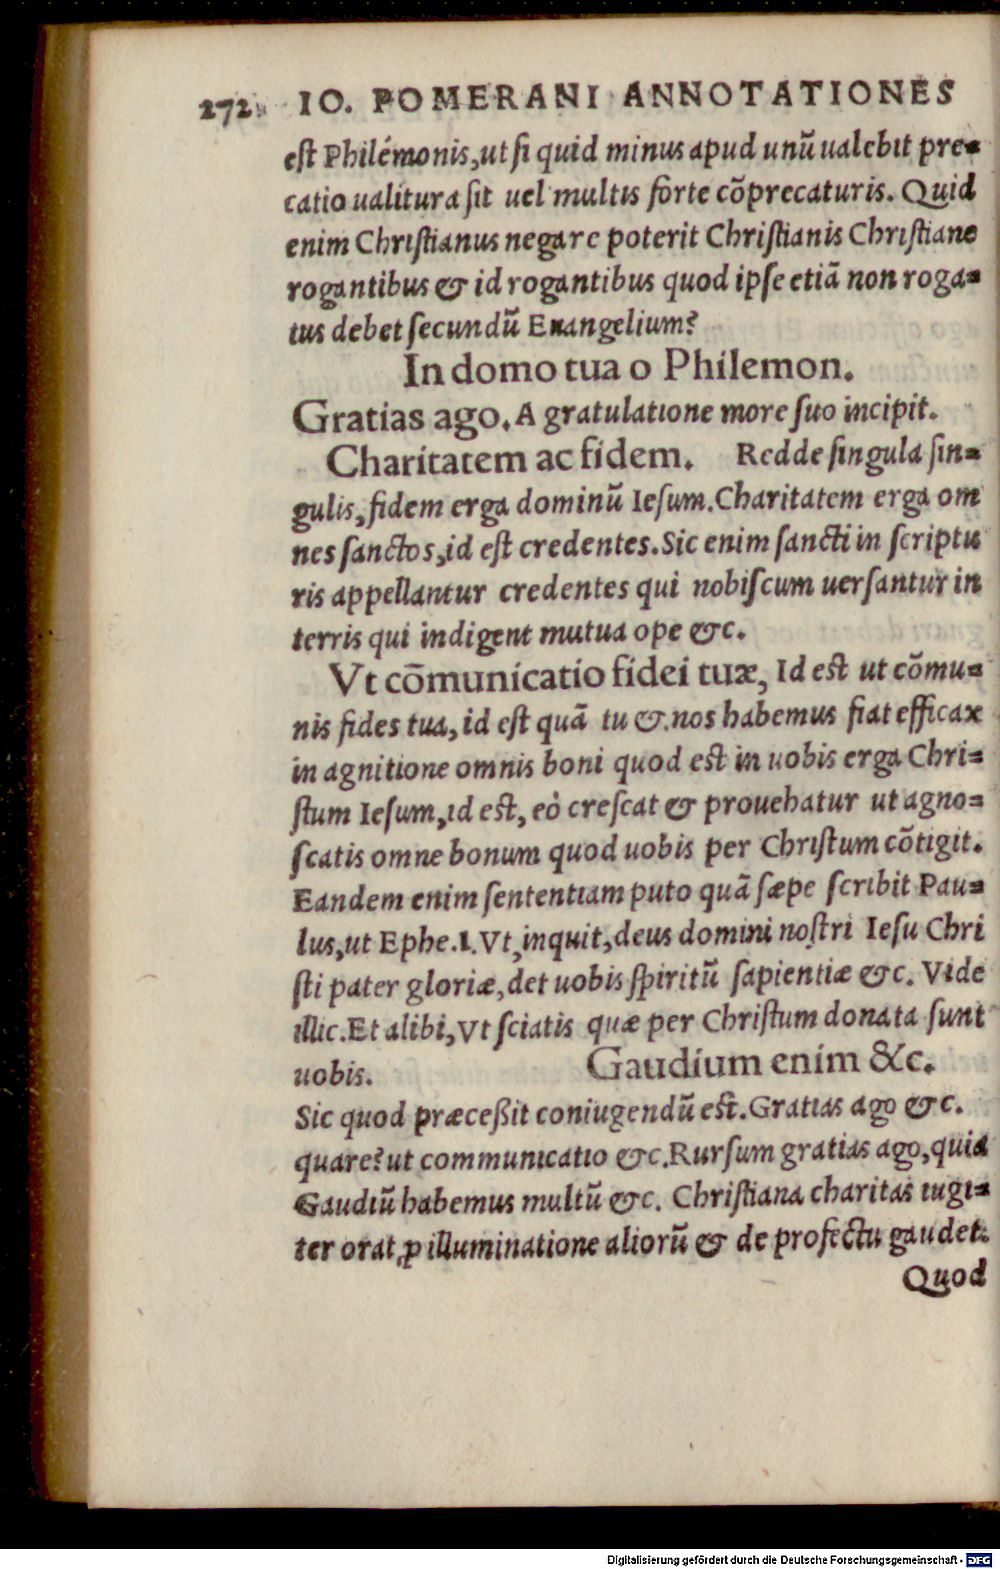 272. IO. POMERANI ANNOTATIONES
est Philémonis, ut si quid minus apud unũ ualebit pre=
catio ualitura sit uel multis forte cõprecaturis. Quid
enim Christianus negare poterit Christianis Christiane
rogantibus & id rogantibus quod ipse etiã non roga=
tus debet secundũ Euangelium?
In domo tua o Philemon.
Gratias ago. A gratulatione more suo incipit.
Charitatem ac fidem. Redde singula sin=
gulis, fidem erga dominũ Iesum. Charitatem erga om
nes sanctos, id est credentes. Sic enim sancti in scriptu
ris appellantur credentes qui nobiscum uersantur in
terris qui indigent mutua ope &c.
Vt cõmunicatio fidei tuæ, Id est ut cõmu=
nis fides tua, id est quã tu &. nos habemus fiat efficax
in agnitione omnis boni quod est in uobis erga Chri=
stum Iesum, id est, eò crescat & prouehatur ut agno=
scatis omne bonum quod uobis per Christum cõtigit.
Eandem enim sententiam puto quã sæpe scribit Pau=
lus, ut Ephe. 1. Vt, inquit, deus domini nostri Iesu Chri
sti pater gloriæ, det uobis spiritũ sapientiæ &c. Vide
illic. Et alibi, Vt sciatis quæ per Christum donata sunt
uobis. Gaudium enim &c.
Sic quod præceßit coniugendũ est. Gratias ago &c.
quare? ut communicatio &c. Rursum gratias ago, quia
Gaudiũ habemus multũ &c. Christiana charitas iugi=
ter orat ꝓ illuminatione aliorũ & de profectu gaudet.
Quod
Digitalisierung gefördert durch die Deutsche Forschungsgemeinschaft - DFG